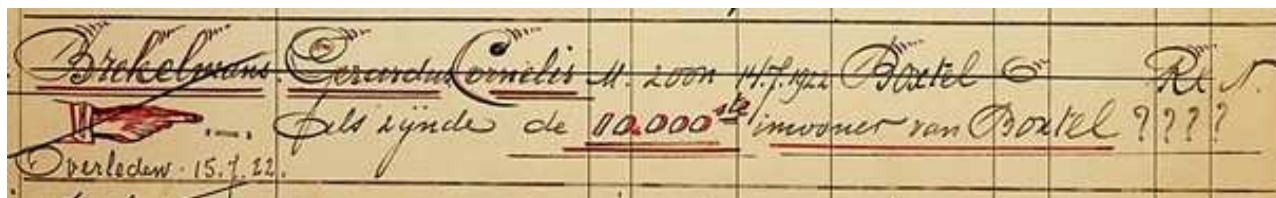 Brekelmans Gerardus Cornelis M. zoon 14.7.1922 Boxtel O RK N.
als zijnde de 10.000ste inwoner van Boxtel ????
Overleden 15.7.22.